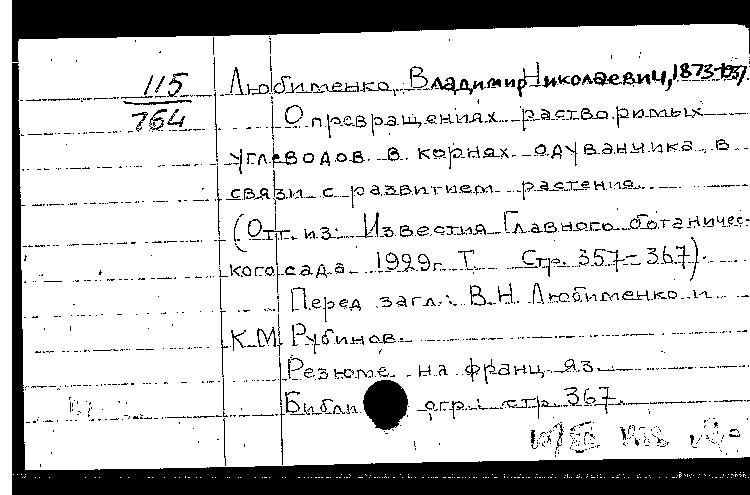 115
764
Любименко, Владимир Николаевич, 1873-1937.
О превращениях растворимых
углеводов в корнях одуванчика в
связи с развитием растения.
(Отт. из: Известия Главного ботаничес-
кого сада 1929г. Т. Стр. 357-367).
Перед загл.: В.Н. Любименко и
К.М. Рубинов.
Резюме на франц. яз.
Библи огр.: стр. 367.